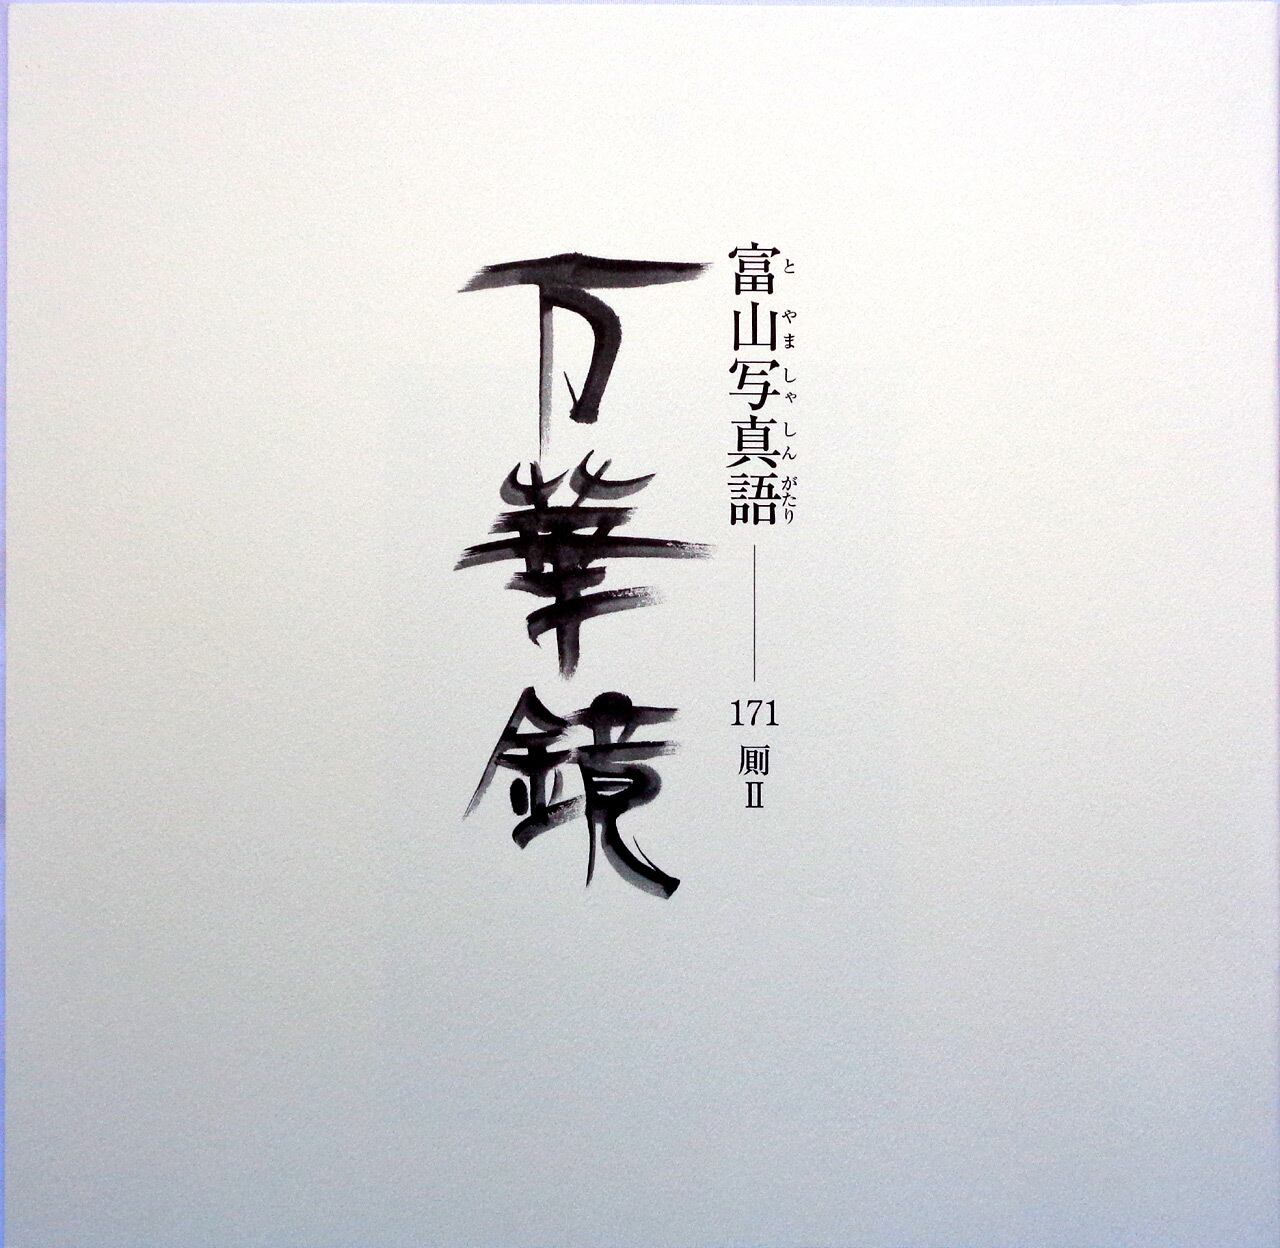 富山写真語
とやましゃしんがたり
171 厠Ⅱ
万華鏡